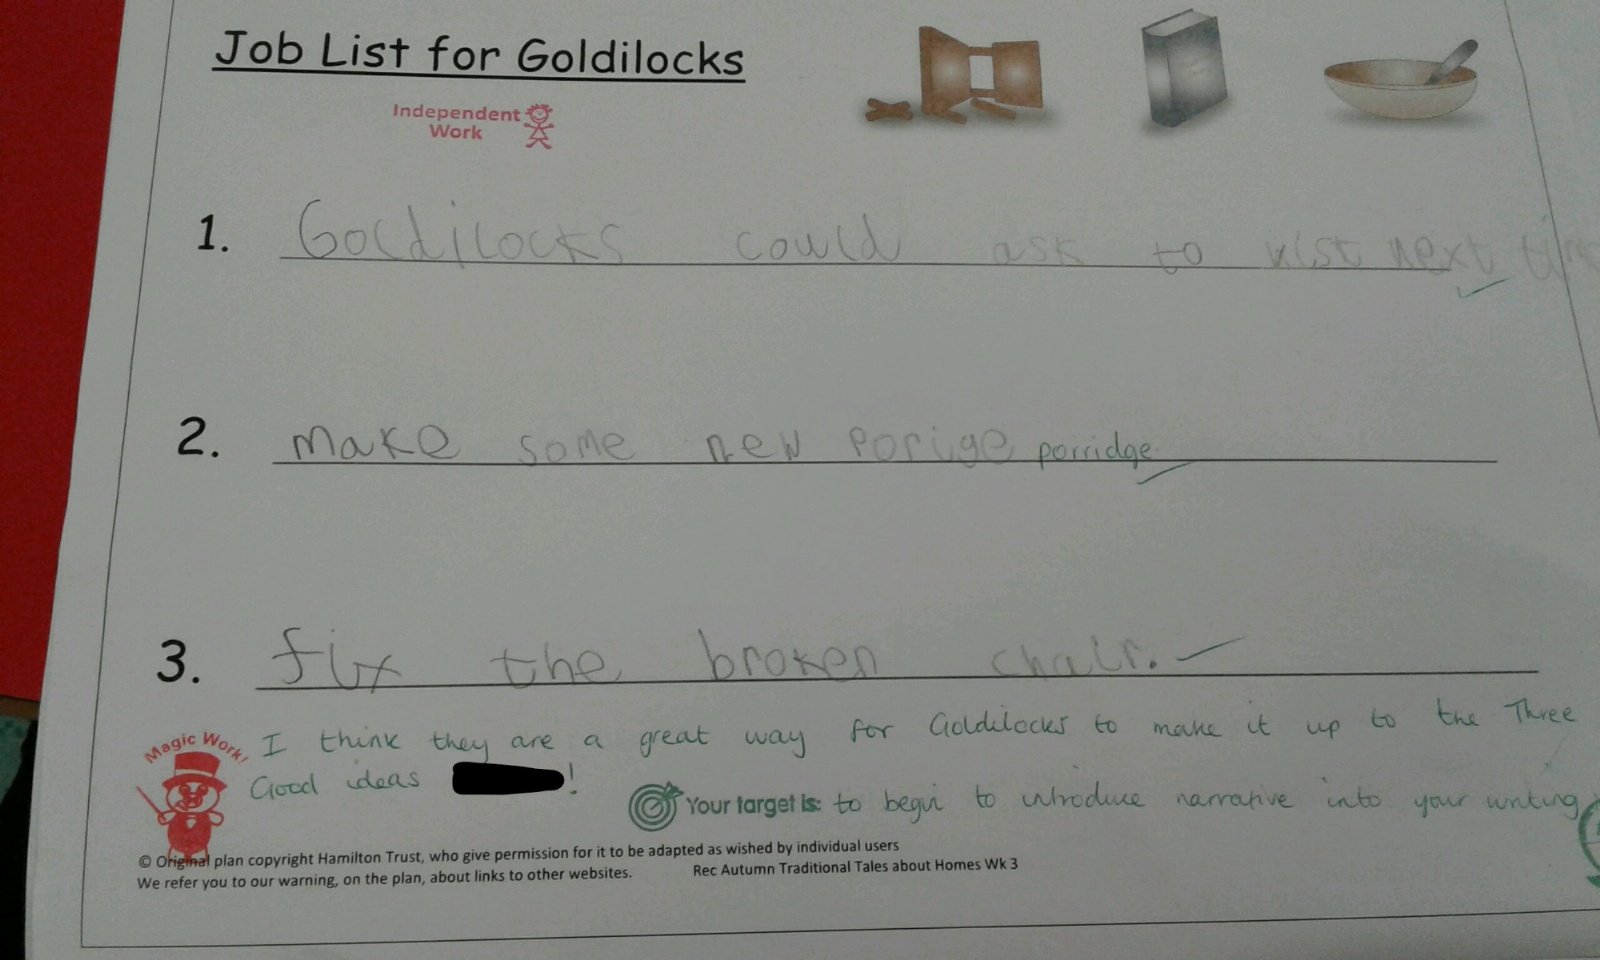 Job List for Goldilocks
Independent
Work
1. Goldilocks could ask to vist next
2. Make some new porige porridge
3. fix the broken chair.
Magic Work!
I think they are a great way for Goldilocks to make it up to the Three
Good ideas !
Your target is: to begin to introduce narrative into your writing
© Original plan copyright Hamilton Trust, who give permission for it to be adapted as wished by individual users
We refer you to our warning, on the plan, about links to other websites. Rec Autumn Traditional Tales about Homes Wk 3